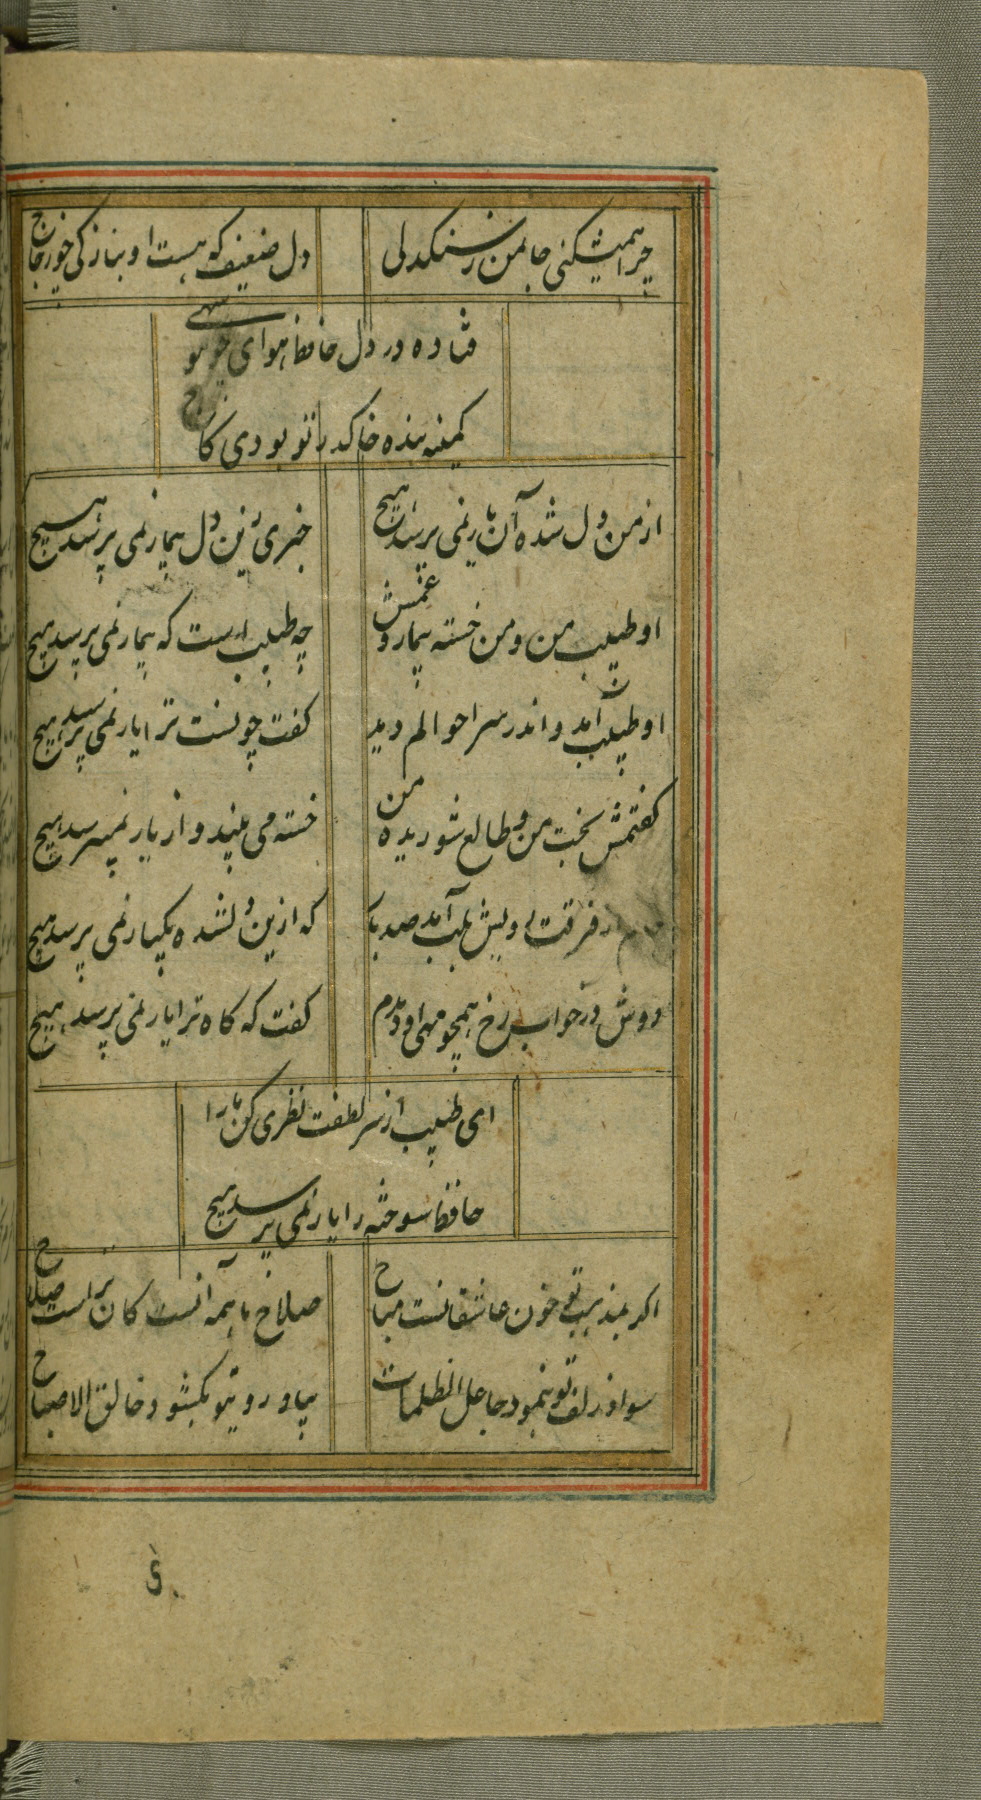 چرا همیشکنی جانمن ز سنکدلی
دل ضعیف که هست او بنازکی چو زجاج
فتاده در دل حافظ هوای چو تو شهی
کمینه بنده خاک در تو بودی کاج
از من دل شده آن یار نمی پرسد هیچ
خبری زین دل بیمار نمی پرسد هیچ
او طبیب من و من خسته بیمار غمش
چه طبیب است که بیمار نمی پرسد هیچ
او طبیب آمد و اندر سر احوالم دید
کفت چونست ترا یار نمی پرسد هیچ
کفتمش بخت من و طالع شوریده من
خسته می بیند و از یار نمیپرسد هیچ
فرقت او بیش بلب آمد صد
که ازین دلشده یکبار نمی پرسد هیچ
دوش در خواب رخ همچو مهی او دیدم
کفت که کاه ترا یار نمی پرسد هیچ
ای طبیب از سر لطفت نظری کن ما را
حافظ سوخته را یار نمی پرسد هیچ
اکر بمذهب تو خون عاشقانست مباح
صلاح ما همه آنست کان تراست صلاح
سواد زلف تو بنمود جاعل الظلمات
بیاض رو یتو بکشود خالق الاصباح